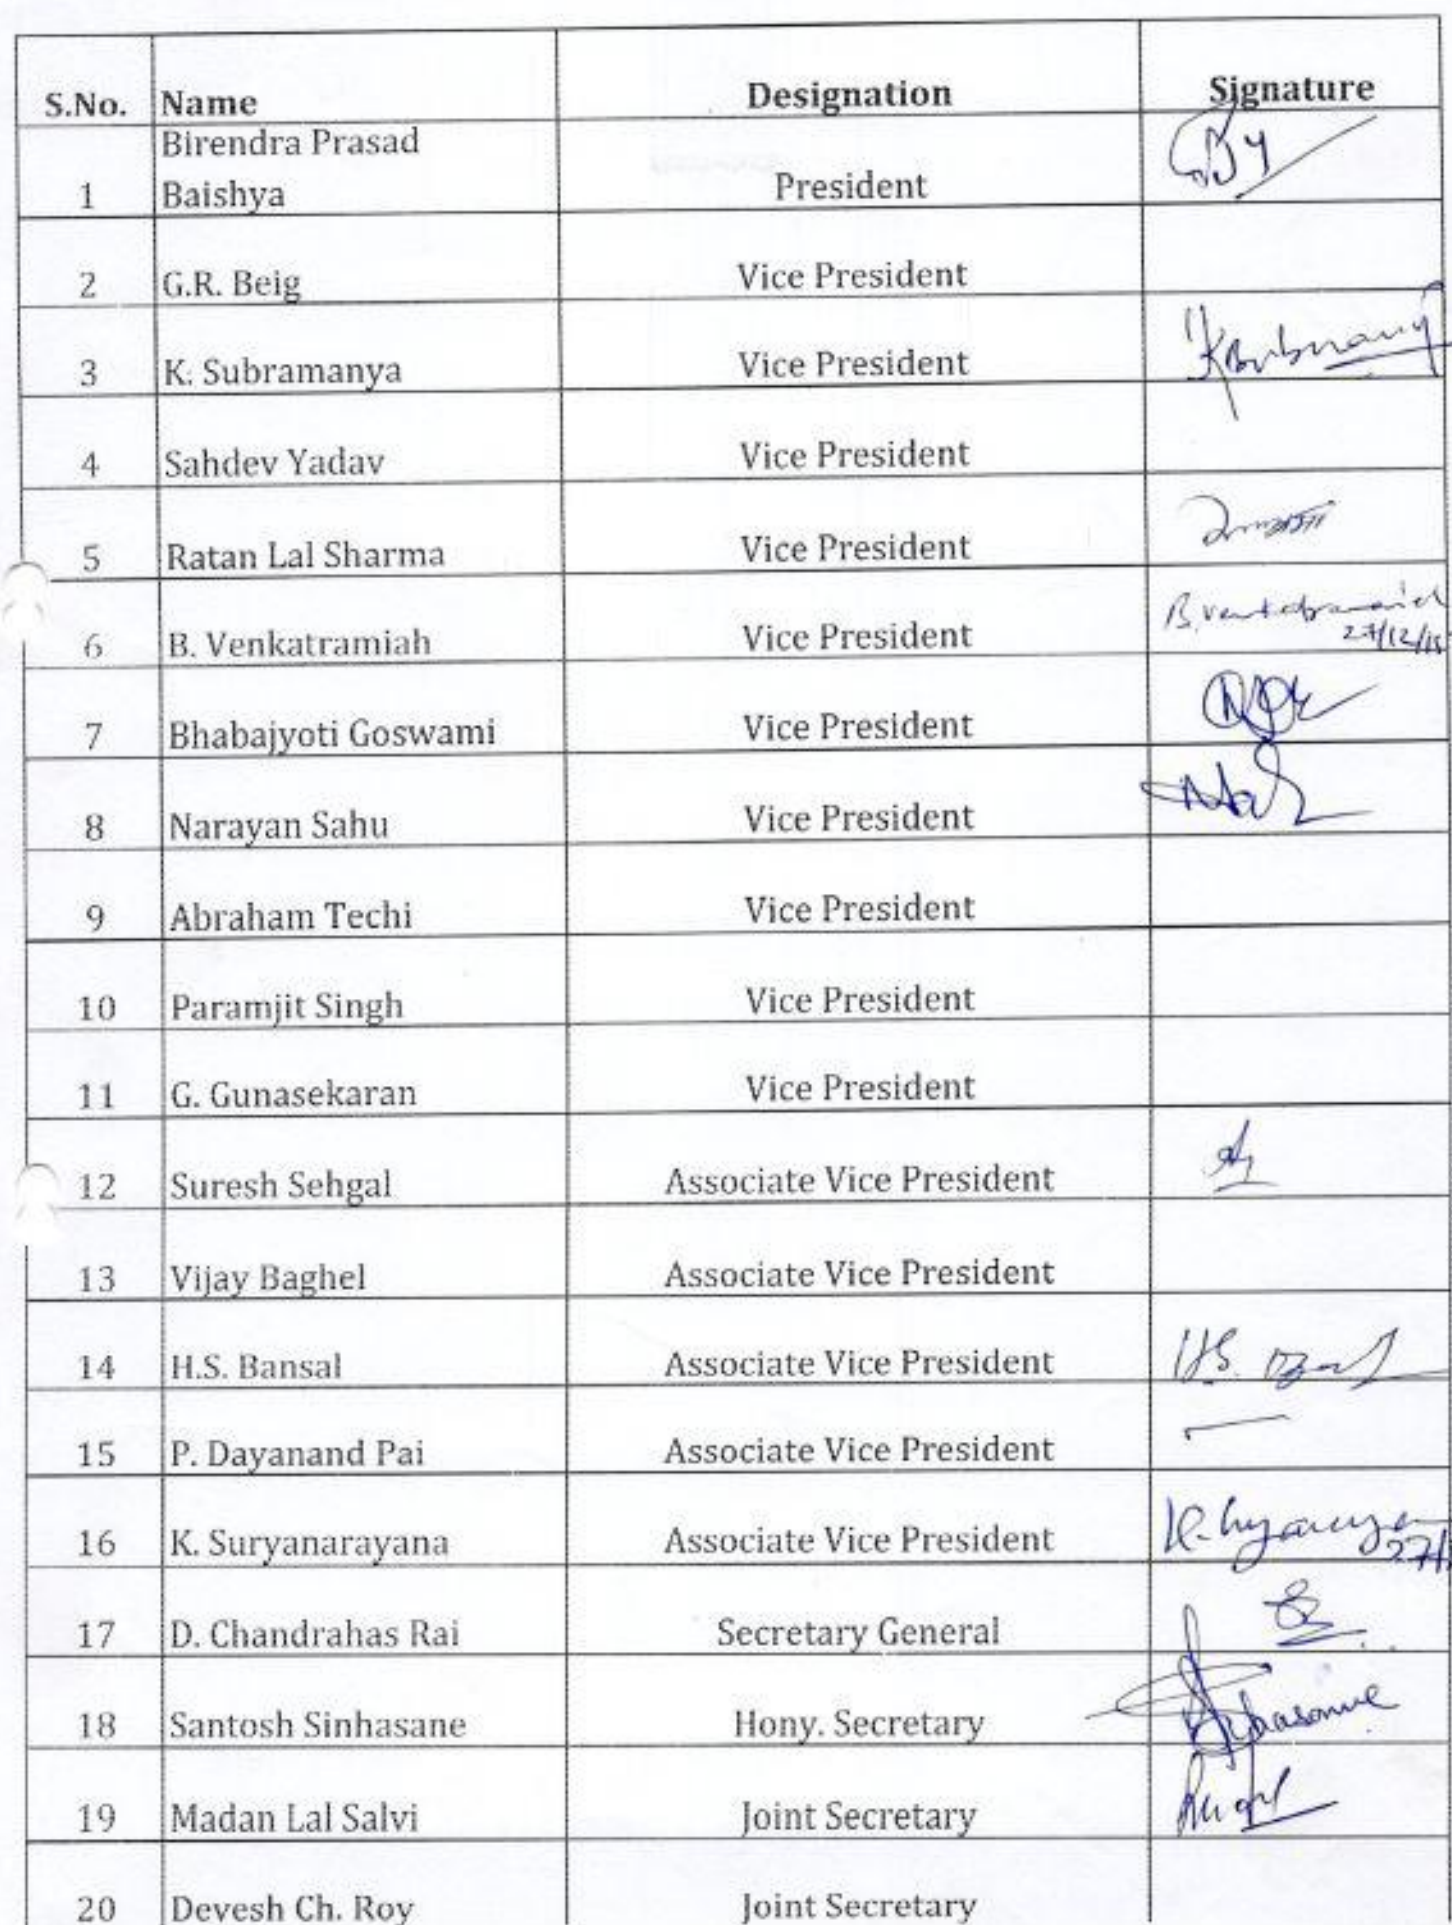 S.No. Name Designation Signature
Birendra Prasad
1 Baishya President
2 G.R. Beig Vice President
3 K. Subramanya Vice President
4 Sahdev Yadav Vice President
5 Ratan Lal Sharma Vice President
6 B. Venkatramiah Vice President B. Venkatramaiah
27/12/15
7 Bhabajyoti Goswami Vice President
8 Narayan Sahu Vice President
9 Abraham Techi Vice President
10 Paramjit Singh Vice President
11 G. Gunasekaran Vice President
12 Suresh Sehgal Associate Vice President
13 Vijay Baghel Associate Vice President
14 H.S. Bansal Associate Vice President H.S.
15 P. Dayanand Pai Associate Vice President
16 K. Suryanarayana Associate Vice President
17 D. Chandrahas Rai Secretary General
18 Santosh Sinhasane Hony. Secretary
19 Madan Lal Salvi Joint Secretary
20 Devesh Ch. Roy Joint Secretary